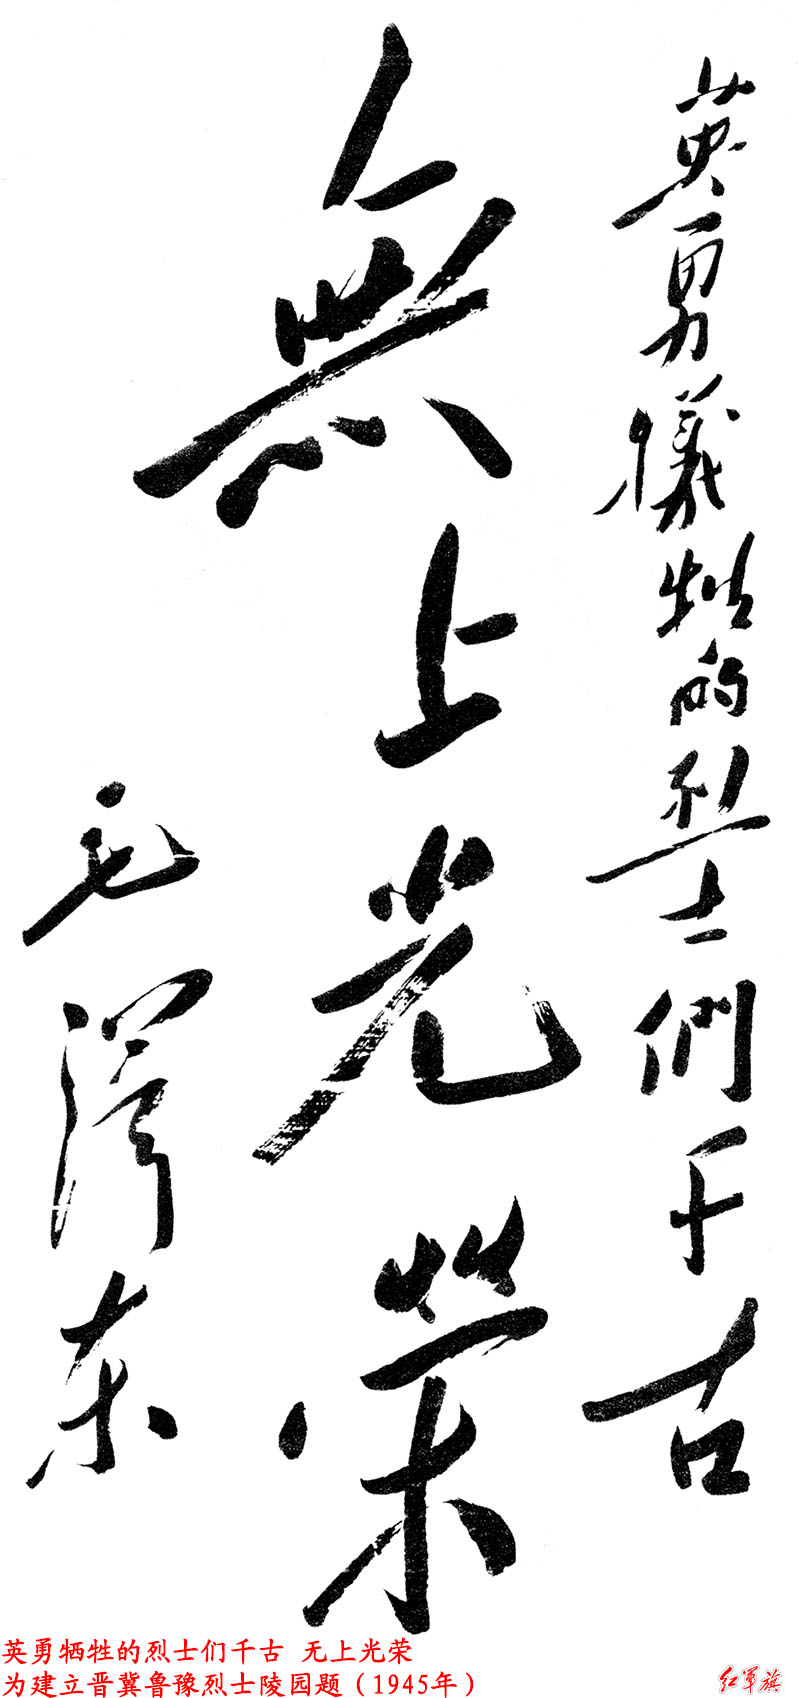 英勇犧牲的烈士們千古
無上光荣
毛澤东
英勇牺牲的烈士们千古 无上光荣
为建立晋冀鲁豫烈士陵园题（1945年）
红軍旗